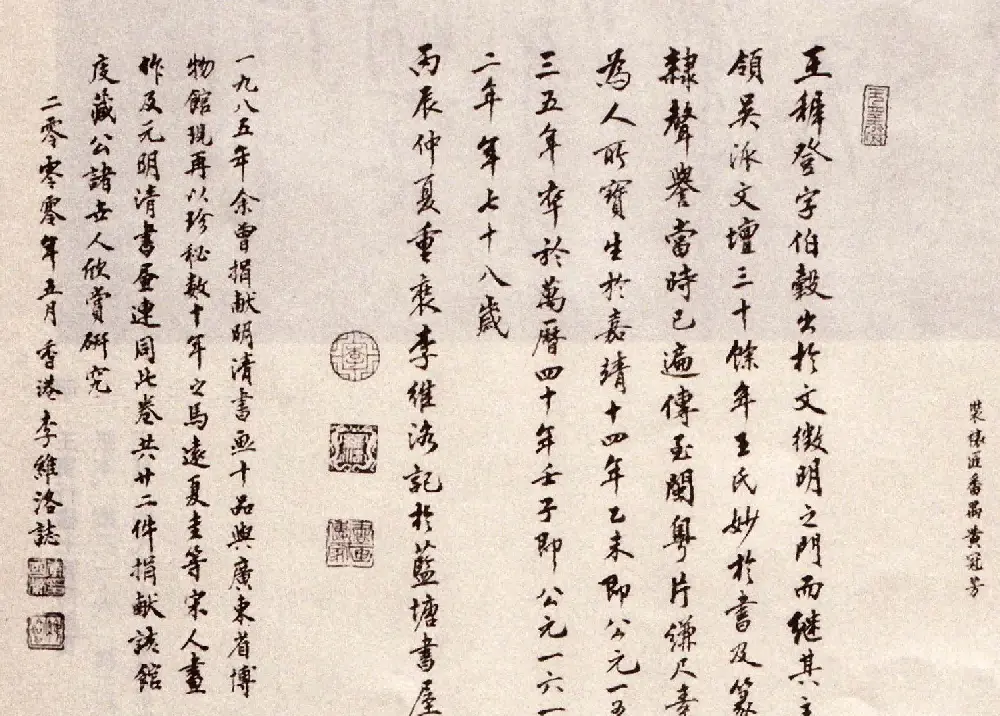 裝匠番禺黃冠芳
王穉登字伯穀出於文徵明之門而継其主
領吳派文壇三十餘年王氏妙於書及篆
隸聲譽當時已遍傳至閩粵片縑尺素
為人所寶生於嘉靖十四年乙未即公元一五
三五年卒於萬曆四十年壬子即公元一六一
二年年七十八歲
丙辰仲夏重李維洛記於藍塘書屋
一九八五年余曾捐献明清書画十品與廣東省博
物館現再以珍秘數十年之馬遠夏圭等宋人畫
作及元明清書畫連同此卷共廿二件捐献該館
庋藏公諸世人欣賞研究
二零零零年五月香港李維洛誌